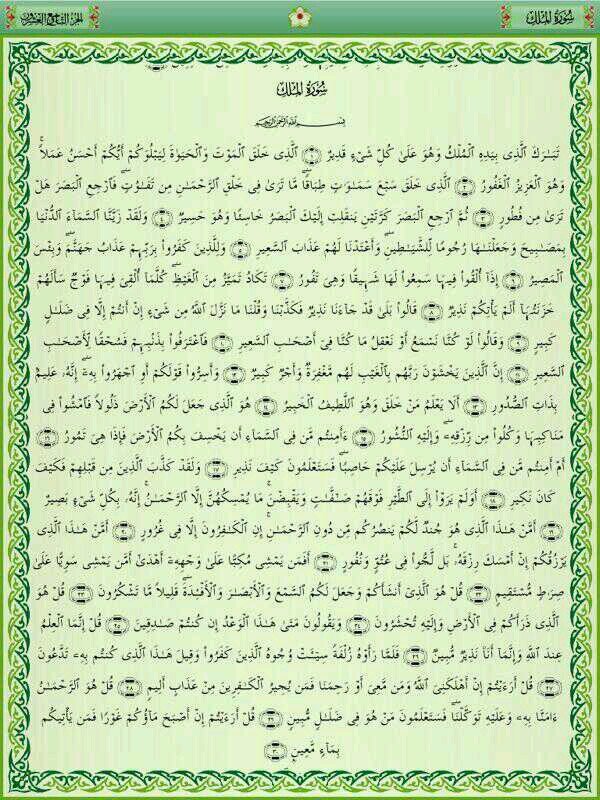 الجزء التاسع والعشرون
سُورَةُ المُلْكِ
سُورَةُ المُلْكِ
بِسْمِ ٱللَّهِ ٱلرَّحْمَٰنِ ٱلرَّحِيمِ
تَبَٰرَكَ ٱلَّذِى بِيَدِهِ ٱلْمُلْكُ وَهُوَ عَلَىٰ كُلِّ شَىْءٍ قَدِيرٌ ﴿١﴾ ٱلَّذِى خَلَقَ ٱلْمَوْتَ وَٱلْحَيَوٰةَ لِيَبْلُوَكُمْ أَيُّكُمْ أَحْسَنُ عَمَلًا ۚ
وَهُوَ ٱلْعَزِيزُ ٱلْغَفُورُ ﴿٢﴾ ٱلَّذِى خَلَقَ سَبْعَ سَمَٰوَٰتٍ طِبَاقًا ۖ مَّا تَرَىٰ فِى خَلْقِ ٱلرَّحْمَٰنِ مِن تَفَٰوُتٍ ۖ فَٱرْجِعِ ٱلْبَصَرَ هَلْ
تَرَىٰ مِن فُطُورٍ ﴿٣﴾ ثُمَّ ٱرْجِعِ ٱلْبَصَرَ كَرَّتَيْنِ يَنقَلِبْ إِلَيْكَ ٱلْبَصَرُ خَاسِئًا وَهُوَ حَسِيرٌ ﴿٤﴾ وَلَقَدْ زَيَّنَّا ٱلسَّمَآءَ ٱلدُّنْيَا
بِمَصَٰبِيحَ وَجَعَلْنَٰهَا رُجُومًا لِّلشَّيَٰطِينِ ۖ وَأَعْتَدْنَا لَهُمْ عَذَابَ ٱلسَّعِيرِ ﴿٥﴾ وَلِلَّذِينَ كَفَرُوا۟ بِرَبِّهِمْ عَذَابُ جَهَنَّمَ ۖ وَبِئْسَ
ٱلْمَصِيرُ ﴿٦﴾ إِذَآ أُلْقُوا۟ فِيهَا سَمِعُوا۟ لَهَا شَهِيقًا وَهِىَ تَفُورُ ﴿٧﴾ تَكَادُ تَمَيَّزُ مِنَ ٱلْغَيْظِ ۖ كُلَّمَآ أُلْقِىَ فِيهَا فَوْجٌ سَأَلَهُمْ
خَزَنَتُهَآ أَلَمْ يَأْتِكُمْ نَذِيرٌ ﴿٨﴾ قَالُوا۟ بَلَىٰ قَدْ جَآءَنَا نَذِيرٌ فَكَذَّبْنَا وَقُلْنَا مَا نَزَّلَ ٱللَّهُ مِن شَىْءٍ إِنْ أَنتُمْ إِلَّا فِى ضَلَٰلٍ
كَبِيرٍ ﴿٩﴾ وَقَالُوا۟ لَوْ كُنَّا نَسْمَعُ أَوْ نَعْقِلُ مَا كُنَّا فِىٓ أَصْحَٰبِ ٱلسَّعِيرِ ﴿١٠﴾ فَٱعْتَرَفُوا۟ بِذَنۢبِهِمْ فَسُحْقًا لِّأَصْحَٰبِ
ٱلسَّعِيرِ ﴿١١﴾ إِنَّ ٱلَّذِينَ يَخْشَوْنَ رَبَّهُم بِٱلْغَيْبِ لَهُم مَّغْفِرَةٌ وَأَجْرٌ كَبِيرٌ ﴿١٢﴾ وَأَسِرُّوا۟ قَوْلَكُمْ أَوِ ٱجْهَرُوا۟ بِهِۦٓ ۖ إِنَّهُۥ عَلِيمٌۢ
بِذَاتِ ٱلصُّدُورِ ﴿١٣﴾ أَلَا يَعْلَمُ مَنْ خَلَقَ وَهُوَ ٱللَّطِيفُ ٱلْخَبِيرُ ﴿١٤﴾ هُوَ ٱلَّذِى جَعَلَ لَكُمُ ٱلْأَرْضَ ذَلُولًا فَٱمْشُوا۟ فِى
مَنَاكِبِهَا وَكُلُوا۟ مِن رِّزْقِهِۦ ۖ وَإِلَيْهِ ٱلنُّشُورُ ﴿١٥﴾ ءَأَمِنتُم مَّن فِى ٱلسَّمَآءِ أَن يَخْسِفَ بِكُمُ ٱلْأَرْضَ فَإِذَا هِىَ تَمُورُ ﴿١٦﴾
أَمْ أَمِنتُم مَّن فِى ٱلسَّمَآءِ أَن يُرْسِلَ عَلَيْكُمْ حَاصِبًا ۖ فَسَتَعْلَمُونَ كَيْفَ نَذِيرِ ﴿١٧﴾ وَلَقَدْ كَذَّبَ ٱلَّذِينَ مِن قَبْلِهِمْ فَكَيْفَ
كَانَ نَكِيرِ ﴿١٨﴾ أَوَلَمْ يَرَوْا۟ إِلَى ٱلطَّيْرِ فَوْقَهُمْ صَٰٓفَّٰتٍ وَيَقْبِضْنَ ۚ مَا يُمْسِكُهُنَّ إِلَّا ٱلرَّحْمَٰنُ ۚ إِنَّهُۥ بِكُلِّ شَىْءٍۭ بَصِيرٌ
﴿١٩﴾ أَمَّنْ هَٰذَا ٱلَّذِى هُوَ جُندٌ لَّكُمْ يَنصُرُكُم مِّن دُونِ ٱلرَّحْمَٰنِ ۚ إِنِ ٱلْكَٰفِرُونَ إِلَّا فِى غُرُورٍ ﴿٢٠﴾ أَمَّنْ هَٰذَا ٱلَّذِى
يَرْزُقُكُمْ إِنْ أَمْسَكَ رِزْقَهُۥ ۚ بَل لَّجُّوا۟ فِى عُتُوٍّ وَنُفُورٍ ﴿٢١﴾ أَفَمَن يَمْشِى مُكِبًّا عَلَىٰ وَجْهِهِۦٓ أَهْدَىٰٓ أَمَّن يَمْشِى سَوِيًّا عَلَىٰ
صِرَٰطٍ مُّسْتَقِيمٍ ﴿٢٢﴾ قُلْ هُوَ ٱلَّذِىٓ أَنشَأَكُمْ وَجَعَلَ لَكُمُ ٱلسَّمْعَ وَٱلْأَبْصَٰرَ وَٱلْأَفْـِٔدَةَ ۖ قَلِيلًا مَّا تَشْكُرُونَ ﴿٢٣﴾ قُلْ هُوَ
ٱلَّذِى ذَرَأَكُمْ فِى ٱلْأَرْضِ وَإِلَيْهِ تُحْشَرُونَ ﴿٢٤﴾ وَيَقُولُونَ مَتَىٰ هَٰذَا ٱلْوَعْدُ إِن كُنتُمْ صَٰدِقِينَ ﴿٢٥﴾ قُلْ إِنَّمَا ٱلْعِلْمُ
عِندَ ٱللَّهِ وَإِنَّمَآ أَنَا۠ نَذِيرٌ مُّبِينٌ ﴿٢٦﴾ فَلَمَّا رَأَوْهُ زُلْفَةً سِيٓـَٔتْ وُجُوهُ ٱلَّذِينَ كَفَرُوا۟ وَقِيلَ هَٰذَا ٱلَّذِى كُنتُم بِهِۦ تَدَّعُونَ
﴿٢٧﴾ قُلْ أَرَءَيْتُمْ إِنْ أَهْلَكَنِىَ ٱللَّهُ وَمَن مَّعِىَ أَوْ رَحِمَنَا فَمَن يُجِيرُ ٱلْكَٰفِرِينَ مِنْ عَذَابٍ أَلِيمٍ ﴿٢٨﴾ قُلْ هُوَ ٱلرَّحْمَٰنُ
ءَامَنَّا بِهِۦ وَعَلَيْهِ تَوَكَّلْنَا ۖ فَسَتَعْلَمُونَ مَنْ هُوَ فِى ضَلَٰلٍ مُّبِينٍ ﴿٢٩﴾ قُلْ أَرَءَيْتُمْ إِنْ أَصْبَحَ مَآؤُكُمْ غَوْرًا فَمَن يَأْتِيكُم
بِمَآءٍ مَّعِينٍۭ ﴿٣٠﴾